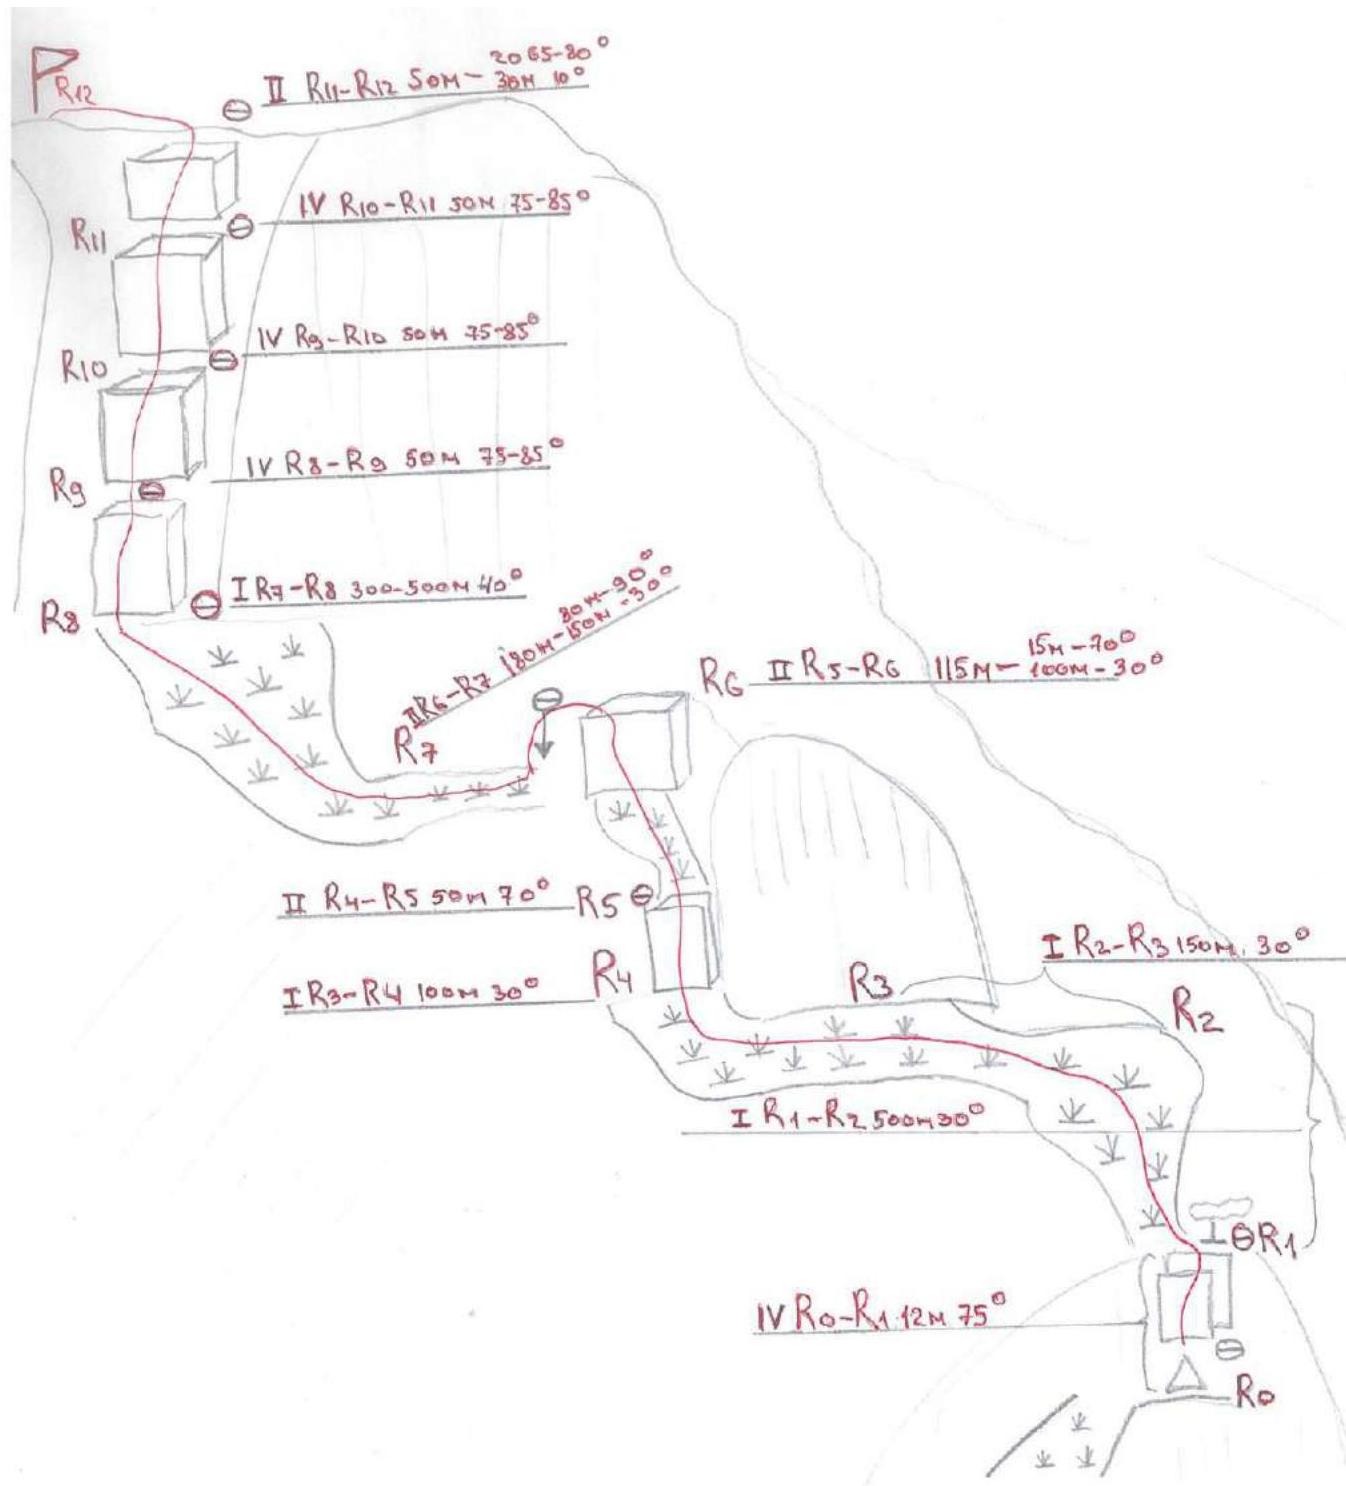 R12
II R11-R12 50м - 20 65-80°
30м 10°
IV R10-R11 50м 75-85°
R11
IV R9-R10 50м 75-85°
R10
IV R8-R9 50м 75-85°
R9
I R7-R8 300-500м 40°
R8
II R6-R7 180м - 150м - 30°
30м - 90°
R7
R6
II R5-R6 115м - 15м - 70°
100м - 30°
II R4-R5 50м 70°
R5
I R3-R4 100м 30°
R4
R3
I R2-R3 150м. 30°
R2
I R1-R2 500м 30°
R1
IV R0-R1 12м 75°
R0